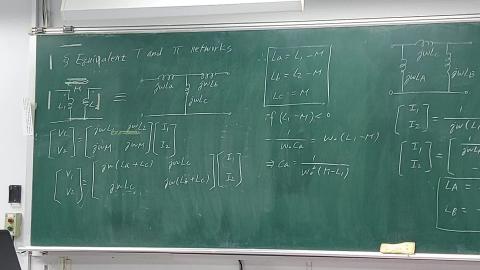 3 Equivalent T and π networks
M
L1 L2
=
jωLa jωLb
jωLc
[V1 V2] = [jωL1 jωL2
jωM jωM] [I1 I2]
[V1 V2] = [jω(La+Lc) jωLc
jωLc jω(Lb+Lc)] [I1 I2]
∴ La = L1 - M
Lb = L2 - M
Lc = M
if (L1-M) < 0
1/ω0Ca = ω0(L1-M)
⇒ Ca = 1/ω0²(M-L1)
jωLC
jωLA jωLB
[I1 I2] = 1/jω(L1
[I1 I2] = [1/jωLA
LA =
LB =